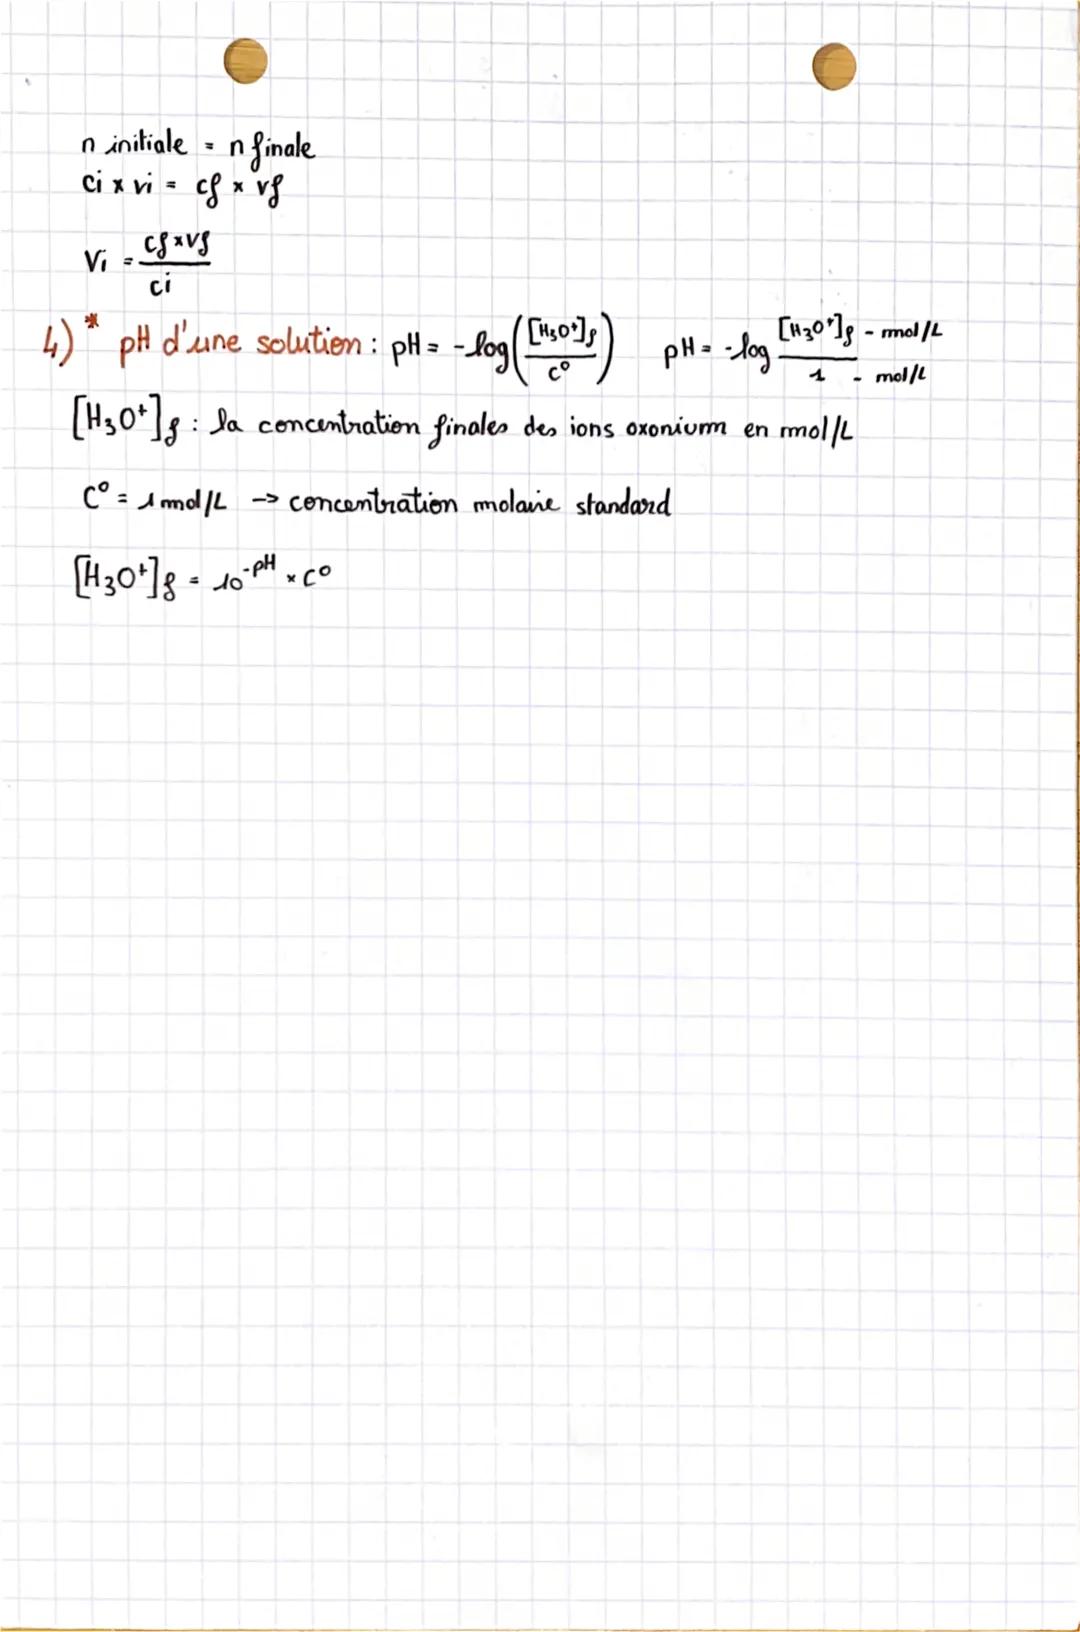 n initiale = n finale
ci x vi = cf x vf
Vi = cf x vf / ci
4) * pH d'une solution : pH = -log([H₃O⁺]f / C°) pH = -log [H₃O⁺]f - mol/L / 1 - mol/L
[H₃O⁺]f : la concentration finales des ions oxonium en mol/L
C° = 1 mol/L -> concentration molaire standard
[H₃O⁺]f = 10⁻ᵖᴴ x C°